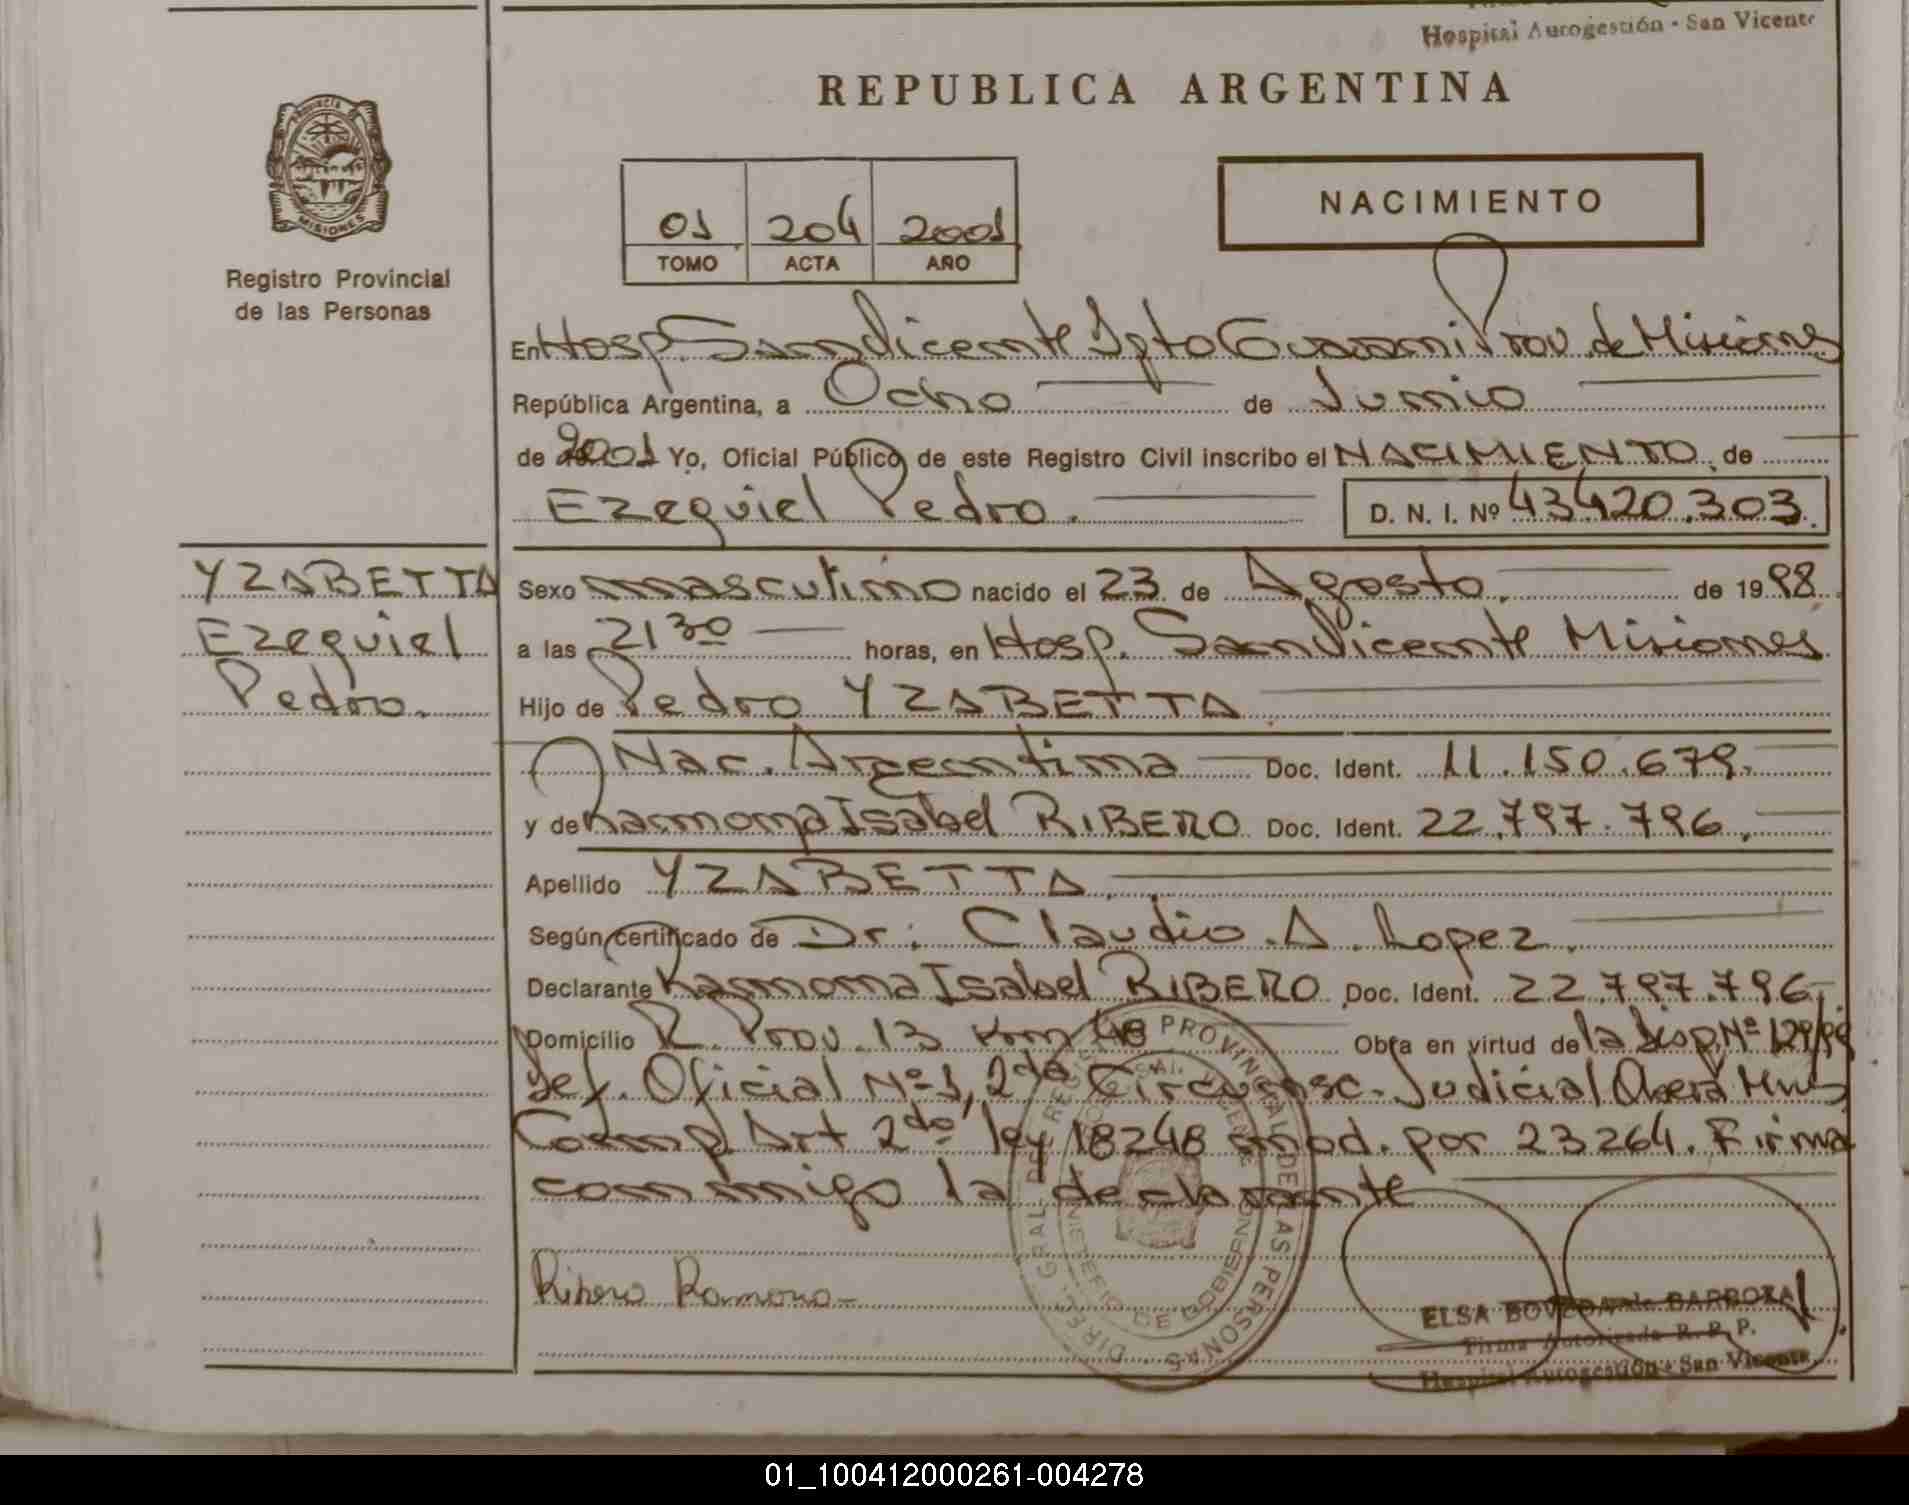 Hospital Autogestión - San Vicente
REPUBLICA ARGENTINA
PROVINCIA
MISIONES
Registro Provincial
de las Personas
01 204 2001
TOMO ACTA AÑO
NACIMIENTO
En Hosp. San Vicente Dpto Guarani Prov. de Misiones
República Argentina, a Ocho de Junio
de 2001 Yo, Oficial Público de este Registro Civil inscribo el NACIMIENTO, de
Ezequiel Pedro. D. N. I. Nº 43420.303.
YZABETTA
Ezequiel
Pedro.
Sexo masculino nacido el 23 de Agosto. de 19 98.
a las 21 30 horas, en Hosp. San Vicente Misiones
Hijo de Pedro YZABETTA
Nac. Argentina Doc. Ident. 11.150.679.
y de Ramona Isabel RIBERO Doc. Ident. 22.797.796.
Apellido YZABETTA.
Según certificado de Dr: Claudio A. Lopez.
Declarante Ramona Isabel RIBERO Doc. Ident. 22.797.796
Domicilio R. Prov. 13 Km 48 Obra en virtud de la Disp. Nº 129/99
Def. Oficial Nº 1, 2da Circunsc. Judicial Oberá Mnes
Comp. Art 2do ley 18248 mod. por 23264. Firma
conmigo la declarante
Ribero Ramona
DIREC. GRAL. DEL REGISTRO PROVINCIAL DE LAS PERSONAS
DE GOBIERNO
ELSA BOVEDA de BARBOZA
Firma Autorizada R. P. P.
Hospital Autogestión - San Vicente
01_100412000261-004278